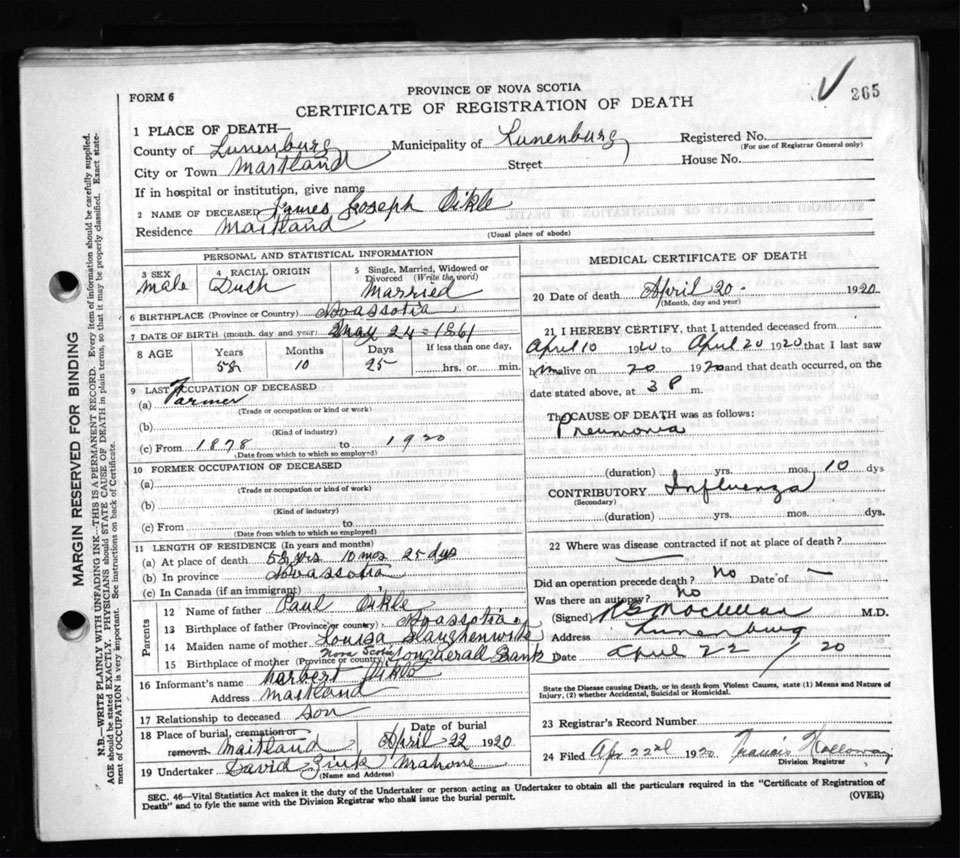 265
PROVINCE OF NOVA SCOTIA
FORM 6
CERTIFICATE OF REGISTRATION OF DEATH
MARGIN RESERVED FOR BINDING
N.B.—WRITE PLAINLY WITH UNFADING INK—THIS IS A PERMANENT RECORD. Every item of information should be carefully supplied.
AGE should be stated EXACTLY. PHYSICIANS should STATE CAUSE OF DEATH in plain terms, so that it may be properly classified. Exact state-
ment of OCCUPATION is very important. See instructions on back of Certificate.
1 PLACE OF DEATH—
County of Lunenburg Municipality of Lunenburg Registered No.
(For use of Registrar General only)
City or Town Maitland Street House No.
If in hospital or institution, give name
2 NAME OF DECEASED James Joseph Oikle
Residence Maitland
(Usual place of abode)
PERSONAL AND STATISTICAL INFORMATION
3 SEX 4 RACIAL ORIGIN 5 Single, Married, Widowed or
Divorced (Write the word)
male Duch Married
6 BIRTHPLACE (Province or Country) Novassotia
7 DATE OF BIRTH (month, day and year) May 24 = 1861
8 AGE Years Months Days If less than one day,
58 10 25 hrs. or min.
9 LAST OCCUPATION OF DECEASED
(a) Farmer
(Trade or occupation or kind or work)
(b)
(Kind of industry)
(c) From 1878 to 1920
(Date from which to which so employed)
10 FORMER OCCUPATION OF DECEASED
(a)
(Trade or occupation or kind of work)
(b)
(Kind of industry)
(c) From to
(Date from which to which so employed)
11 LENGTH OF RESIDENCE (In years and months)
(a) At place of death 58 yrs 10 mos 25 dys
(b) In province Novassotia
(c) In Canada (if an immigrant)
Parents
12 Name of father Paul Oikle
13 Birthplace of father (Province or country) Novassotia
14 Maiden name of mother Louisa Slaughenwite
15 Birthplace of mother (Province or country) Nova Scotia Conquerall Bank
16 Informant's name Harbert Oikle
Address Maitland
17 Relationship to deceased son
18 Place of burial, cremation or Date of burial
removal Maitland April 22 1920
19 Undertaker David Zink Mahone
(Name and Address)
MEDICAL CERTIFICATE OF DEATH
20 Date of death April 20 - 1920
(Month, day and year)
21 I HEREBY CERTIFY, that I attended deceased from
April 10 1920 to April 20 1920 that I last saw
him alive on 20 1920 and that death occurred, on the
date stated above, at 3 P m.
The CAUSE OF DEATH was as follows:
Pneumonia
(duration) yrs. mos. 10 dys
CONTRIBUTORY Influenza
(Secondary)
(duration) yrs. mos. dys.
22 Where was disease contracted if not at place of death?
Did an operation precede death? No Date of —
Was there an autopsy? No
(Signed) M.D.
Address Lunenburg
Date April 22 / 20
State the Disease causing Death, or in death from Violent Causes, state (1) Means and Nature of
Injury, (2) whether Accidental, Suicidal or Homicidal.
23 Registrar's Record Number
24 Filed Apr 22nd 1920 Francis Holloway
Division Registrar
SEC. 46—Vital Statistics Act makes it the duty of the Undertaker or person acting as Undertaker to obtain all the particulars required in the "Certificate of Registration of
Death" and to fyle the same with the Division Registrar who shall issue the burial permit.
(OVER)